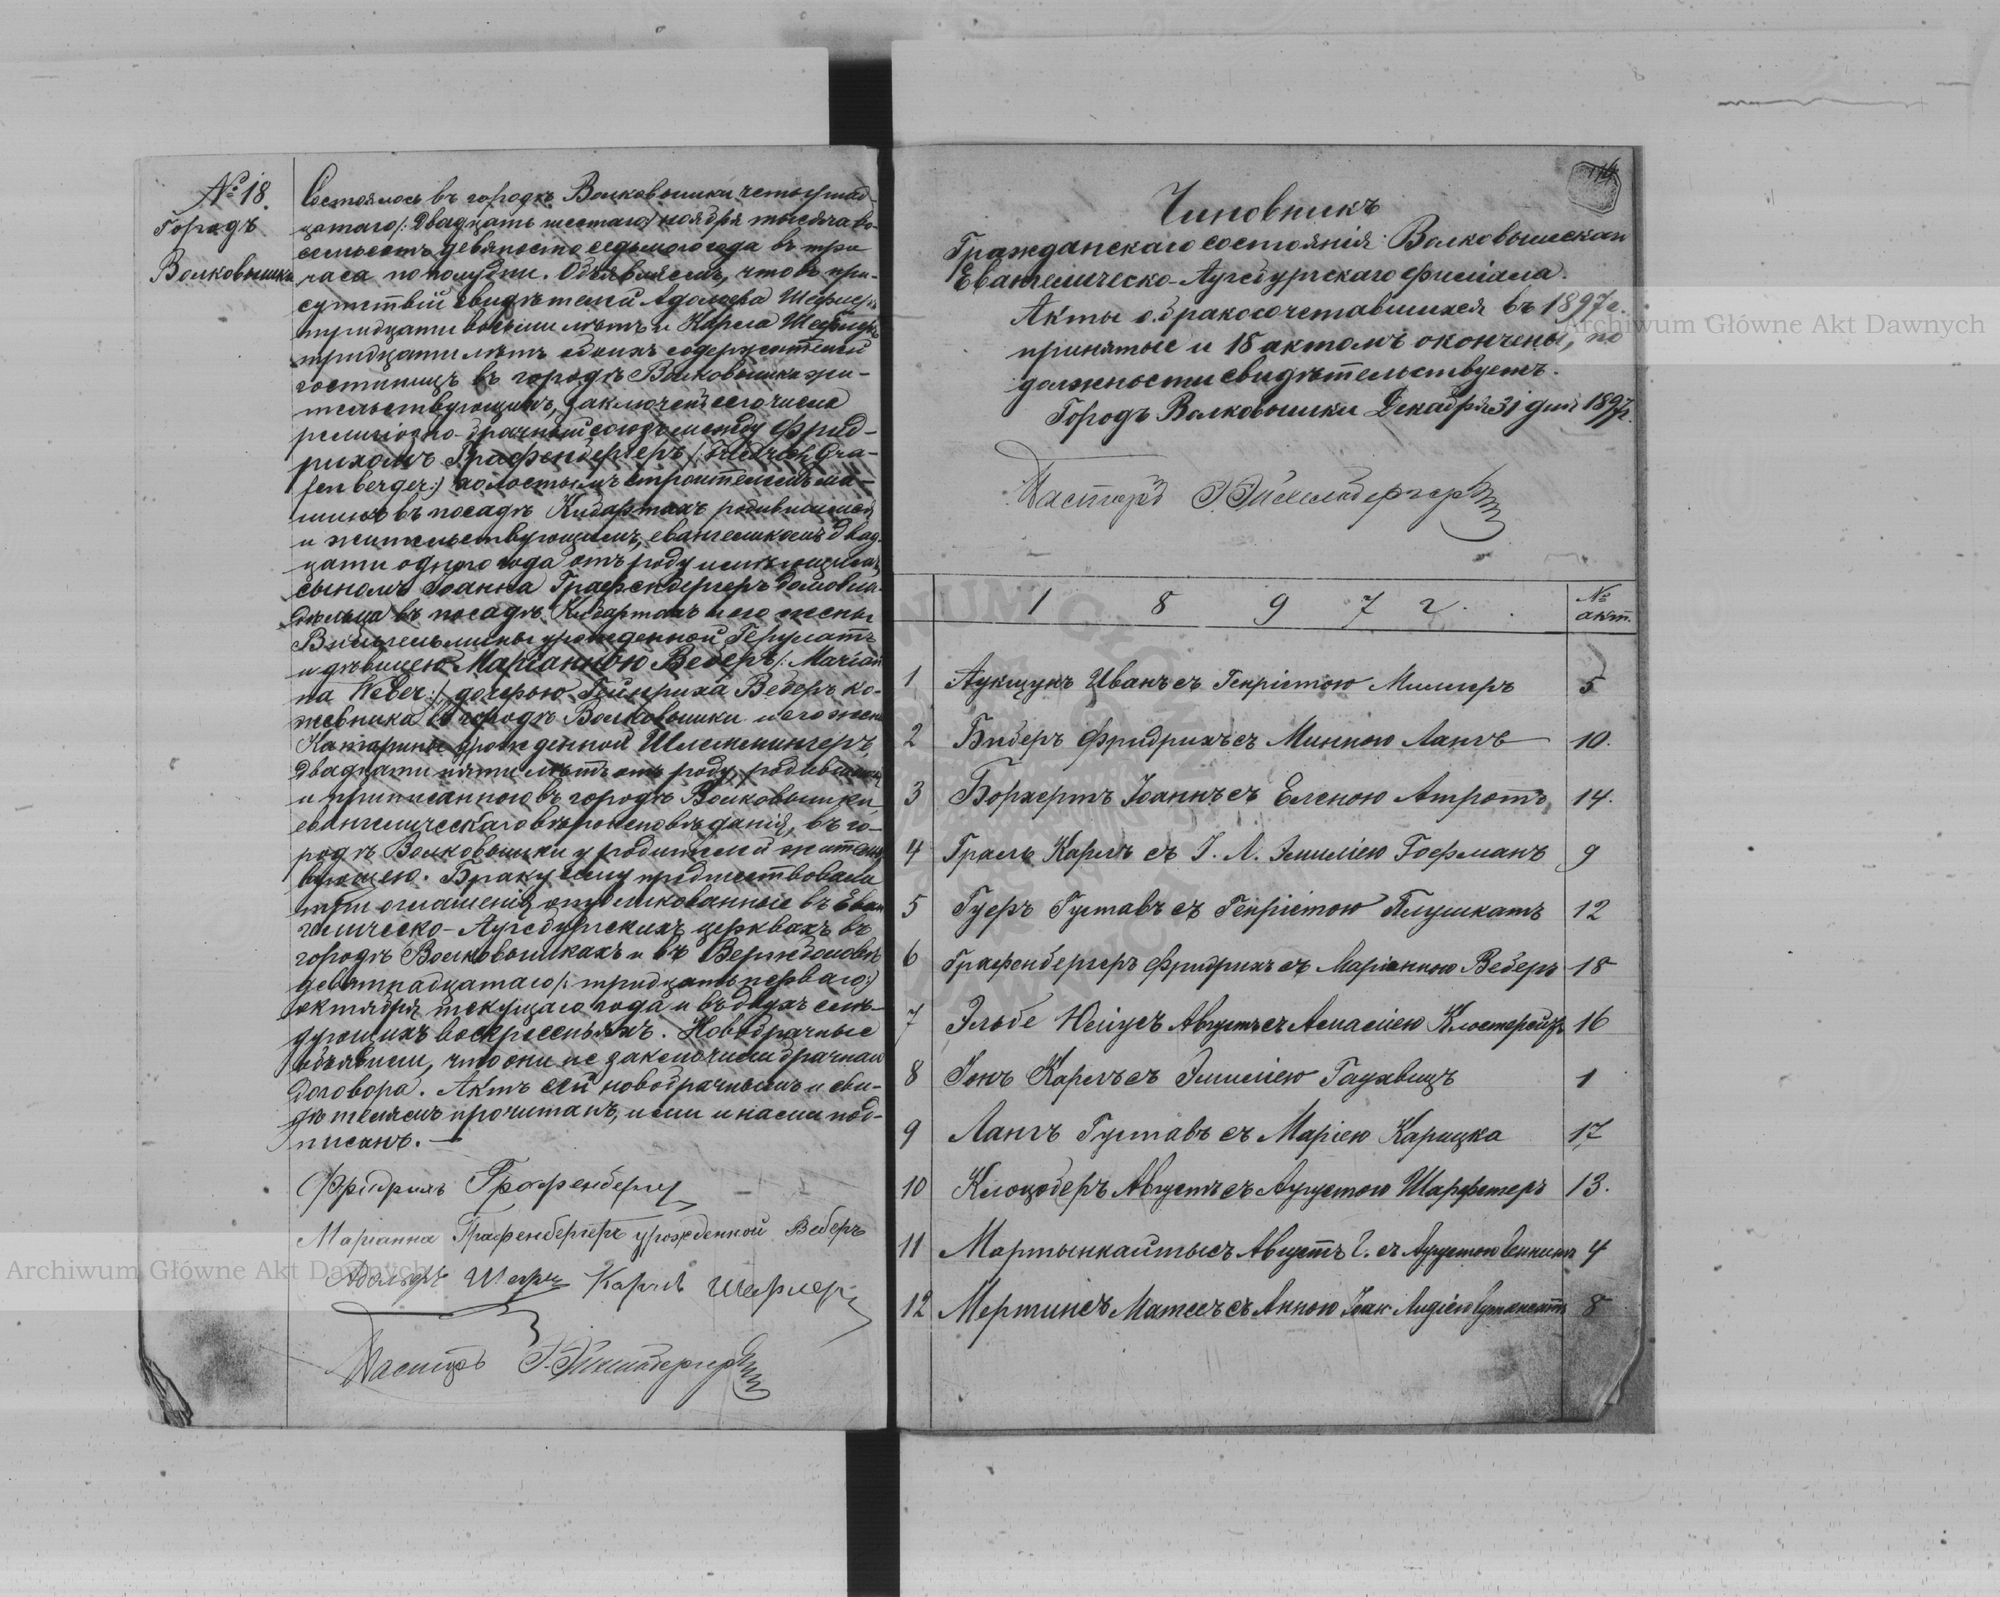 № 18.
Городъ
Волковышки
Состоялось въ городѣ Волковышки четырнад-
цатаго /: двадцать шестаго:/ ноября тысяча во-
семьсотъ девяносто седьмого года въ три
часа по полудни. Объявляемъ, что въ при-
сутствіи свидѣтелей Адольфа Шефлеръ
тридцати восьми лѣтъ и Карла Шефлеръ
тридцати лѣтъ обоихъ содержателей
гостиницъ въ городѣ Волковышки жи-
тельствующихъ, заключенъ сего числа
религіозно-брачный союзъ между Фрид-
рихомъ Графенбергеръ /: Friedrich Gra-
fenberger:/ холостымъ строителемъ ма-
шинъ въ посадѣ Кибартахъ родившимся
и жительствующимъ, евангеликомъ двад-
цати одного года отъ роду
сыномъ Іоанна Графенбергеръ домовла-
дѣльца въ посадѣ Кибартахъ и его жены
Вильгельмины урожденной
и дѣвицею Маріанною Веберъ /: Marian-
na Veber:/, дочерью Гейнриха Веберъ ко-
жевника въ городѣ Волковышки и его жены
Катарины урожденной Шлемингеръ
двадцати пяти лѣтъ отъ роду, родившеюся
и приписанною въ городѣ Волковышки
евангелическаго вѣроисповѣданія, въ го-
родѣ Волковышки у родителей жительст-
вующею. Браку сему предшествовали
три оглашенія опубликованные въ Еван-
гелическо-Аугсбургскихъ церквахъ въ
городѣ Волковышкахъ и въ Вержболовѣ
девятнадцатаго /: тридцать перваго:/
октября текущаго года и въ двухъ слѣ-
дующихъ воскресеньяхъ. Новобрачные
объявили, что они не заключили брачнаго
договора. Актъ сей новобрачнымъ и сви-
дѣтелямъ прочитанъ, ими и нами под-
писанъ. —
Фридрихъ Графенбергер
Маріанна Графенбергеръ урожденной Веберъ
Адольфъ Шефлер Карлъ Шефлеръ
Пасторъ
Чиновникъ
Гражданскаго состоянія Волковышскаго
Евангелическо-Аугсбургскаго филіала.
Акты о бракосочетавшихся въ 1897 г.
принятые и 18 актомъ окончены, по
должности свидѣтельствуетъ.
Городъ Волковышки Декабря 31 дня 1897 г.
Пасторъ
1 8 9 7 г. № акт.
1 Аукщунъ Иванъ съ Генріетою Миллеръ 5
2 Биберъ Фридрихъ съ Минною Лангъ 10.
3 Борхертъ Іоаннъ съ Еленою Атротъ 14.
4 Граль Карлъ съ І. Л. Эмиліею Гофманъ 9
5 Гуеръ Густавъ съ Генріетою Плушкатъ 12
6 Графенбергеръ Фридрихъ съ Маріанною Веберъ 18
7 Эльбе Юліусъ Августъ съ Амаліею 16
8 Іонъ Карлъ съ Эмиліею 1
9 Лангъ Густавъ съ Маріею Карицка 17
10 Клоцоберъ Августъ съ Аугустою Шарфетеръ 13.
11 Мартынкайтысъ Августъ съ Аугустою 4
12 Мертинсъ съ Анною 8
Archiwum Główne Akt Dawnych
Archiwum Główne Akt Dawnych